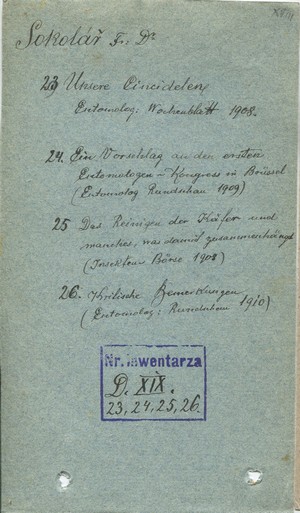 XVIII
Sokolář Fr. Dr
23) Unsere Cicindelen
Entomolog: Wochenblatt 1908.
24. Ein Vorschlag an den ersten
Entomologen-Kongress in Brüssel
(Entomolog Rundschau 1909)
25 Das Reinigen der Käfer und
manches, was damit zusammenhängt
(Insekten Börse 1908)
26. Kritische Bemerkungen
(Entomolog: Rundschau 1910)
Nr. inwentarza
D. XIX.
23, 24, 25, 26.